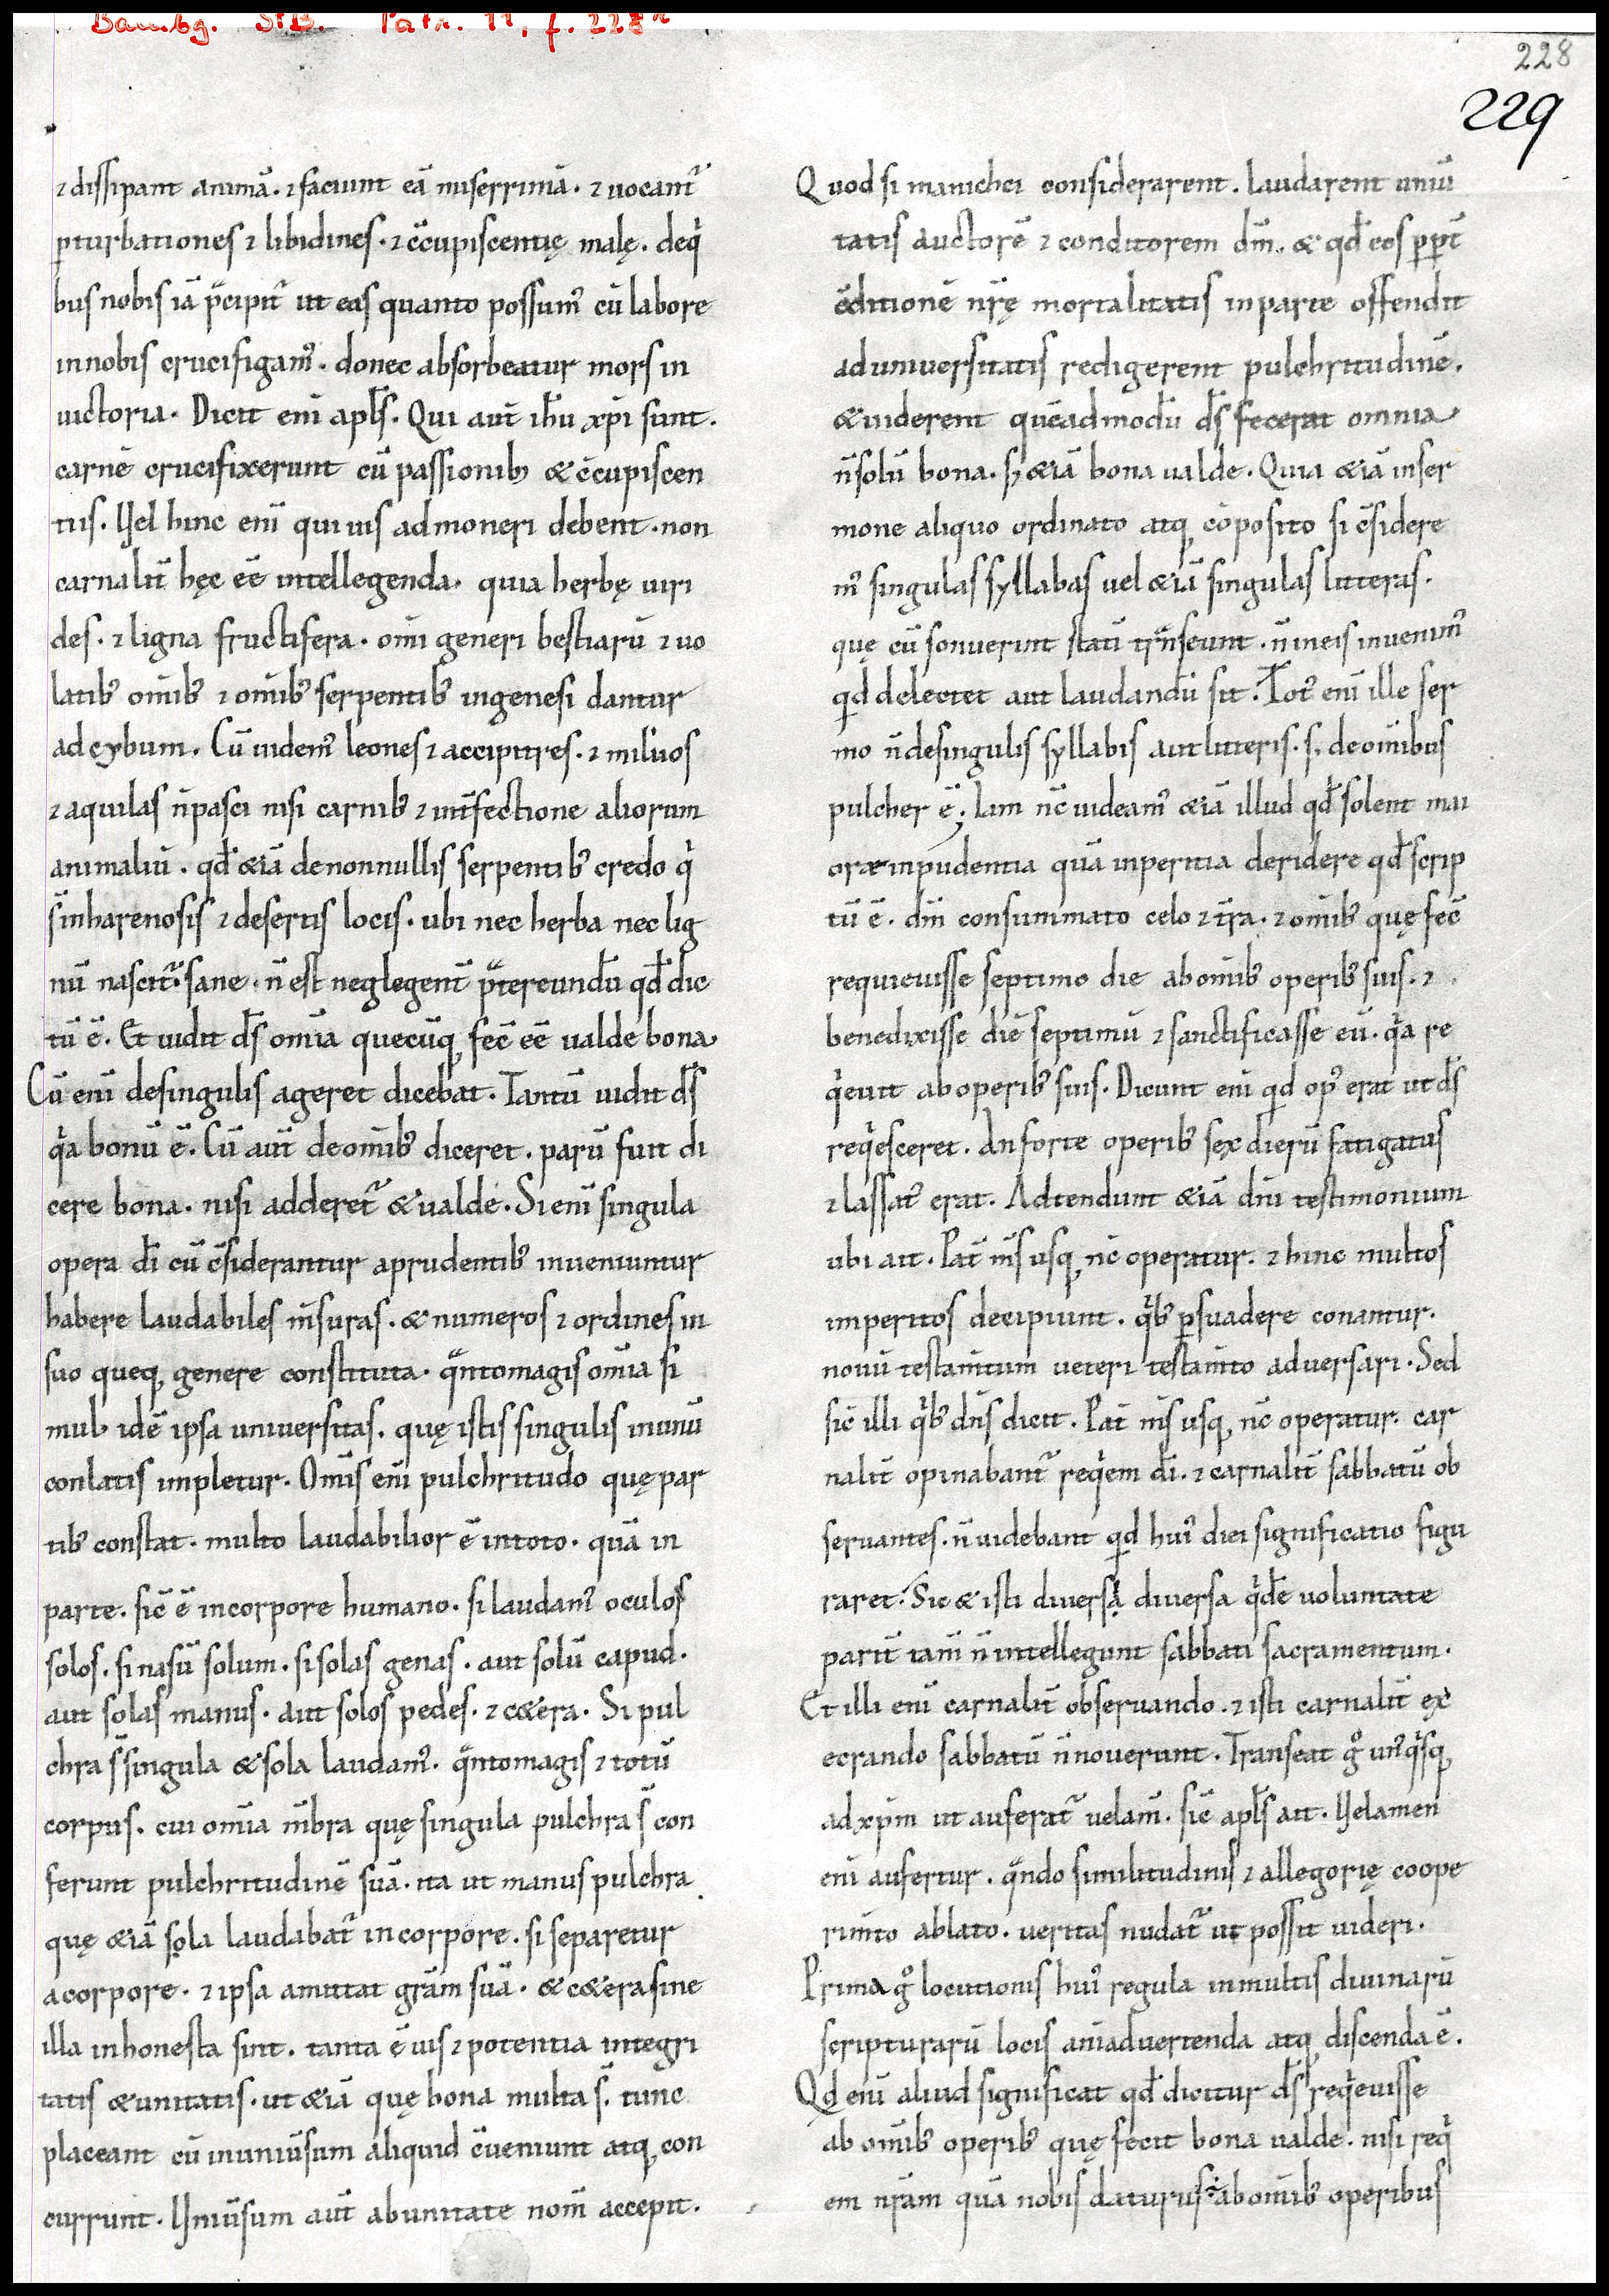 Bambg. StB. Patr. 11, f. 228r
228
229
⁊ dissipant animā. ⁊ faciunt eā miserrimā. ⁊ uocant᷑
ꝑturbationes ⁊ libidines. ⁊ c̄cupiscentię malę. deq̇
bus nobis iā p̄cipit᷑ ut eas quanto possumꝰ cū labore
in nobis crucifigamꝰ. donec absorbeatur mors in
uictoria. Dicit enī apl̄s. Qui aut̄ ih̄u xp̄i sunt.
carnē crucifixerunt cū passionibꝫ & c̄cupiscen
tiis. Vel hinc enī qui uis admoneri debent. non
carnalit̄ hęc eē intellegenda. quia herbę uiri
des. ⁊ ligna fructifera. om̄i generi bestiarū ⁊ uo
latibꝰ om̄ibꝰ ⁊ om̄ibꝰ serpentibꝰ in genesi dantur
ad cybum. Cū uidemꝰ leones ⁊ accipitres. ⁊ miluos
⁊ aquilas n̄ pasci nisi carnibꝰ ⁊ int̄fectione aliorum
animaliū. qd̄ &iā de nonnullis serpentibꝰ credo q̇
s̄ in harenosis ⁊ desertis locis. ubi nec herba nec lig
nū nascit᷑. sane. n̄ est neglegent̄ p̄tereundū qd̄ dic
tū ē. Et uidit d̄s om̄ia quecūq, fec̄ eē ualde bona
Cū enī de singulis ageret dicebat. Tantū uidit d̄s
q̇a bonū ē. Cū aut̄ de om̄ibꝰ diceret. parū fuit di
cere bona. nisi adderet᷑ & ualde. Si enī singula
opera dī cū c̄siderantur a prudentibꝰ inueniuntur
habere laudabiles m̄suras. & numeros ⁊ ordines in
suo queq, genere constituta. qͣnto magis om̄ia si
mul. idē ipsa uniuersitas. quę istis singulis in unū
conlatis impletur. Om̄is enī pulchritudo quę par
tibꝰ constat. multo laudabilior ē in toto. quā in
parte. sic̄ ē in corpore humano. si laudamꝰ oculos
solos. si nasū solum. si solas genas. aut solū capud.
aut solas manus. aut solos pedes. ⁊ c&era. Si pul
chra s̄ singula & sola laudamꝰ. qͣnto magis ⁊ totū
corpus. cui om̄ia m̄bra quę singula pulchra s̄ con
ferunt pulchritudinē suā. ita ut manus pulchra
quę &iā sola laudabat᷑ in corpore. si separetur
a corpore. ⁊ ipsa amittat gr̄am suā. & c&era sine
illa inhonesta sint. tanta ē uis ⁊ potentia integri
tatis & unitatis. ut &iā quę bona multa s̄. tunc
placeant cū in uniūsum aliquid c̄ueniunt atq, con
currunt. Vniūsum aut̄ ab unitate nom̄ accepit.
Quod si manichei considerarent. laudarent uniū
tatis auctorē ⁊ conditorem dm̄. & qd̄ eos ꝓpt̄
c̄ditionē nr̄ę mortalitatis in parte offendit
ad uniuersitatis redigerent pulchritudinē.
& uiderent quēadmodū d̄s fecerat omnia
n̄ solū bona. sꝫ &iā bona ualde. Quia &iā in ser
mone aliquo ordinato atq, cōposito si c̄sidere
mꝰ singulas syllabas uel &iā singulas litteras.
quę cū sonuerint statī trͣnseunt. n̄ in eis inuenimꝰ
qd delectet aut laudandū sit. Totꝰ enī ille ser
mo n̄ de singulis syllabis aut litteris. sꝫ de om̄ibus
pulcher ē; Iam nc̄ uideamꝰ &iā illud qd̄ solent mai
oræ inpudentia quā inperitia deridere qd̄ scrip
tū ē. dm̄ consummato celo ⁊ t̄ra. ⁊ om̄ibꝰ quę fec̄
requieuisse septimo die ab om̄ibꝰ operibꝰ suis. ⁊
benedixisse diē septimū ⁊ sanctificasse eū. q̇a re
q̇euit ab operibꝰ suis. Dicunt enī qd opꝰ erat ut d̄s
req̇esceret. An forte operibꝰ sex dierū fatigatus
⁊ lassatꝰ erat. Adtendunt &iā dn̄i testimonium
ubi ait. Pat̄ m̄s usq, nc̄ operatur. ⁊ hinc multos
imperitos decipiunt. q̇bꝰ ꝑsuadere conantur.
nouū testam̄tum ueteri testam̄to aduersari. Sed
sic̄ illi q̇bꝰ dn̄s dicit. Pat̄ m̄s usq, nc̄ operatur. car
nalit̄ opinabant᷑ req̇em dī. ⁊ carnalit̄ sabbatū ob
seruantes. n̄ uidebant qd huiꝰ diei significatio figu
raret. Sic & isti diuersa̩ diuersa q̇dē uoluntate
parit̄ tam̄ n̄ intellegunt sabbati sacramentum.
Et illi enī carnalit̄ obseruando. ⁊ isti carnalit̄ ex
ecrando sabbatū n̄ nouerunt. Transeat gͦ unꝰq̇sq,
ad xp̄m ut auferat᷑ uelam̄. sic̄ apl̄s ait. Velamen
enī aufertur. qͣndo similitudinis ⁊ allegorię coope
rim̄to ablato. ueritas nudat᷑ ut possit uideri.
Prima gͦ locutionis huiꝰ regula in multis diuinarū
scripturarū locis anīaduertenda atq, discenda ē.
Qd enī aliud significat qd̄ dicitur d̄s req̇euisse
ab om̄ibꝰ operibꝰ quę fecit bona ualde. nisi req̇
em nr̄am quā nobis daturus ÷ ab om̄ibꝰ operibus